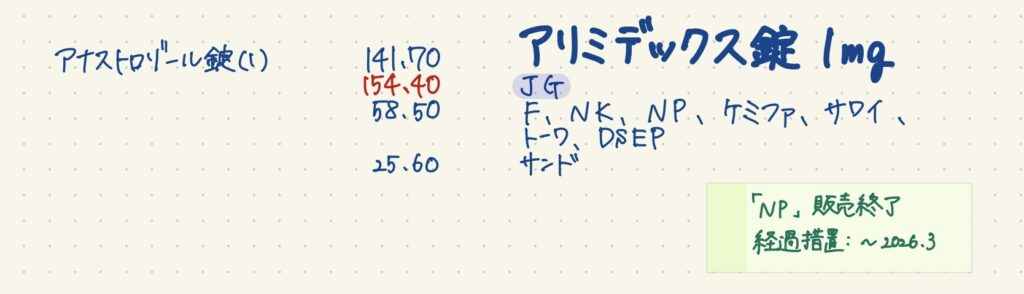 アナストロゾール錠(1) 141.70 アリミデックス錠 1mg
154.40 JG
58.50 F、NK、NP、ケミファ、サワイ、
トーワ、DSEP
25.60 サンド
「NP」販売終了
経過措置:~2026.3